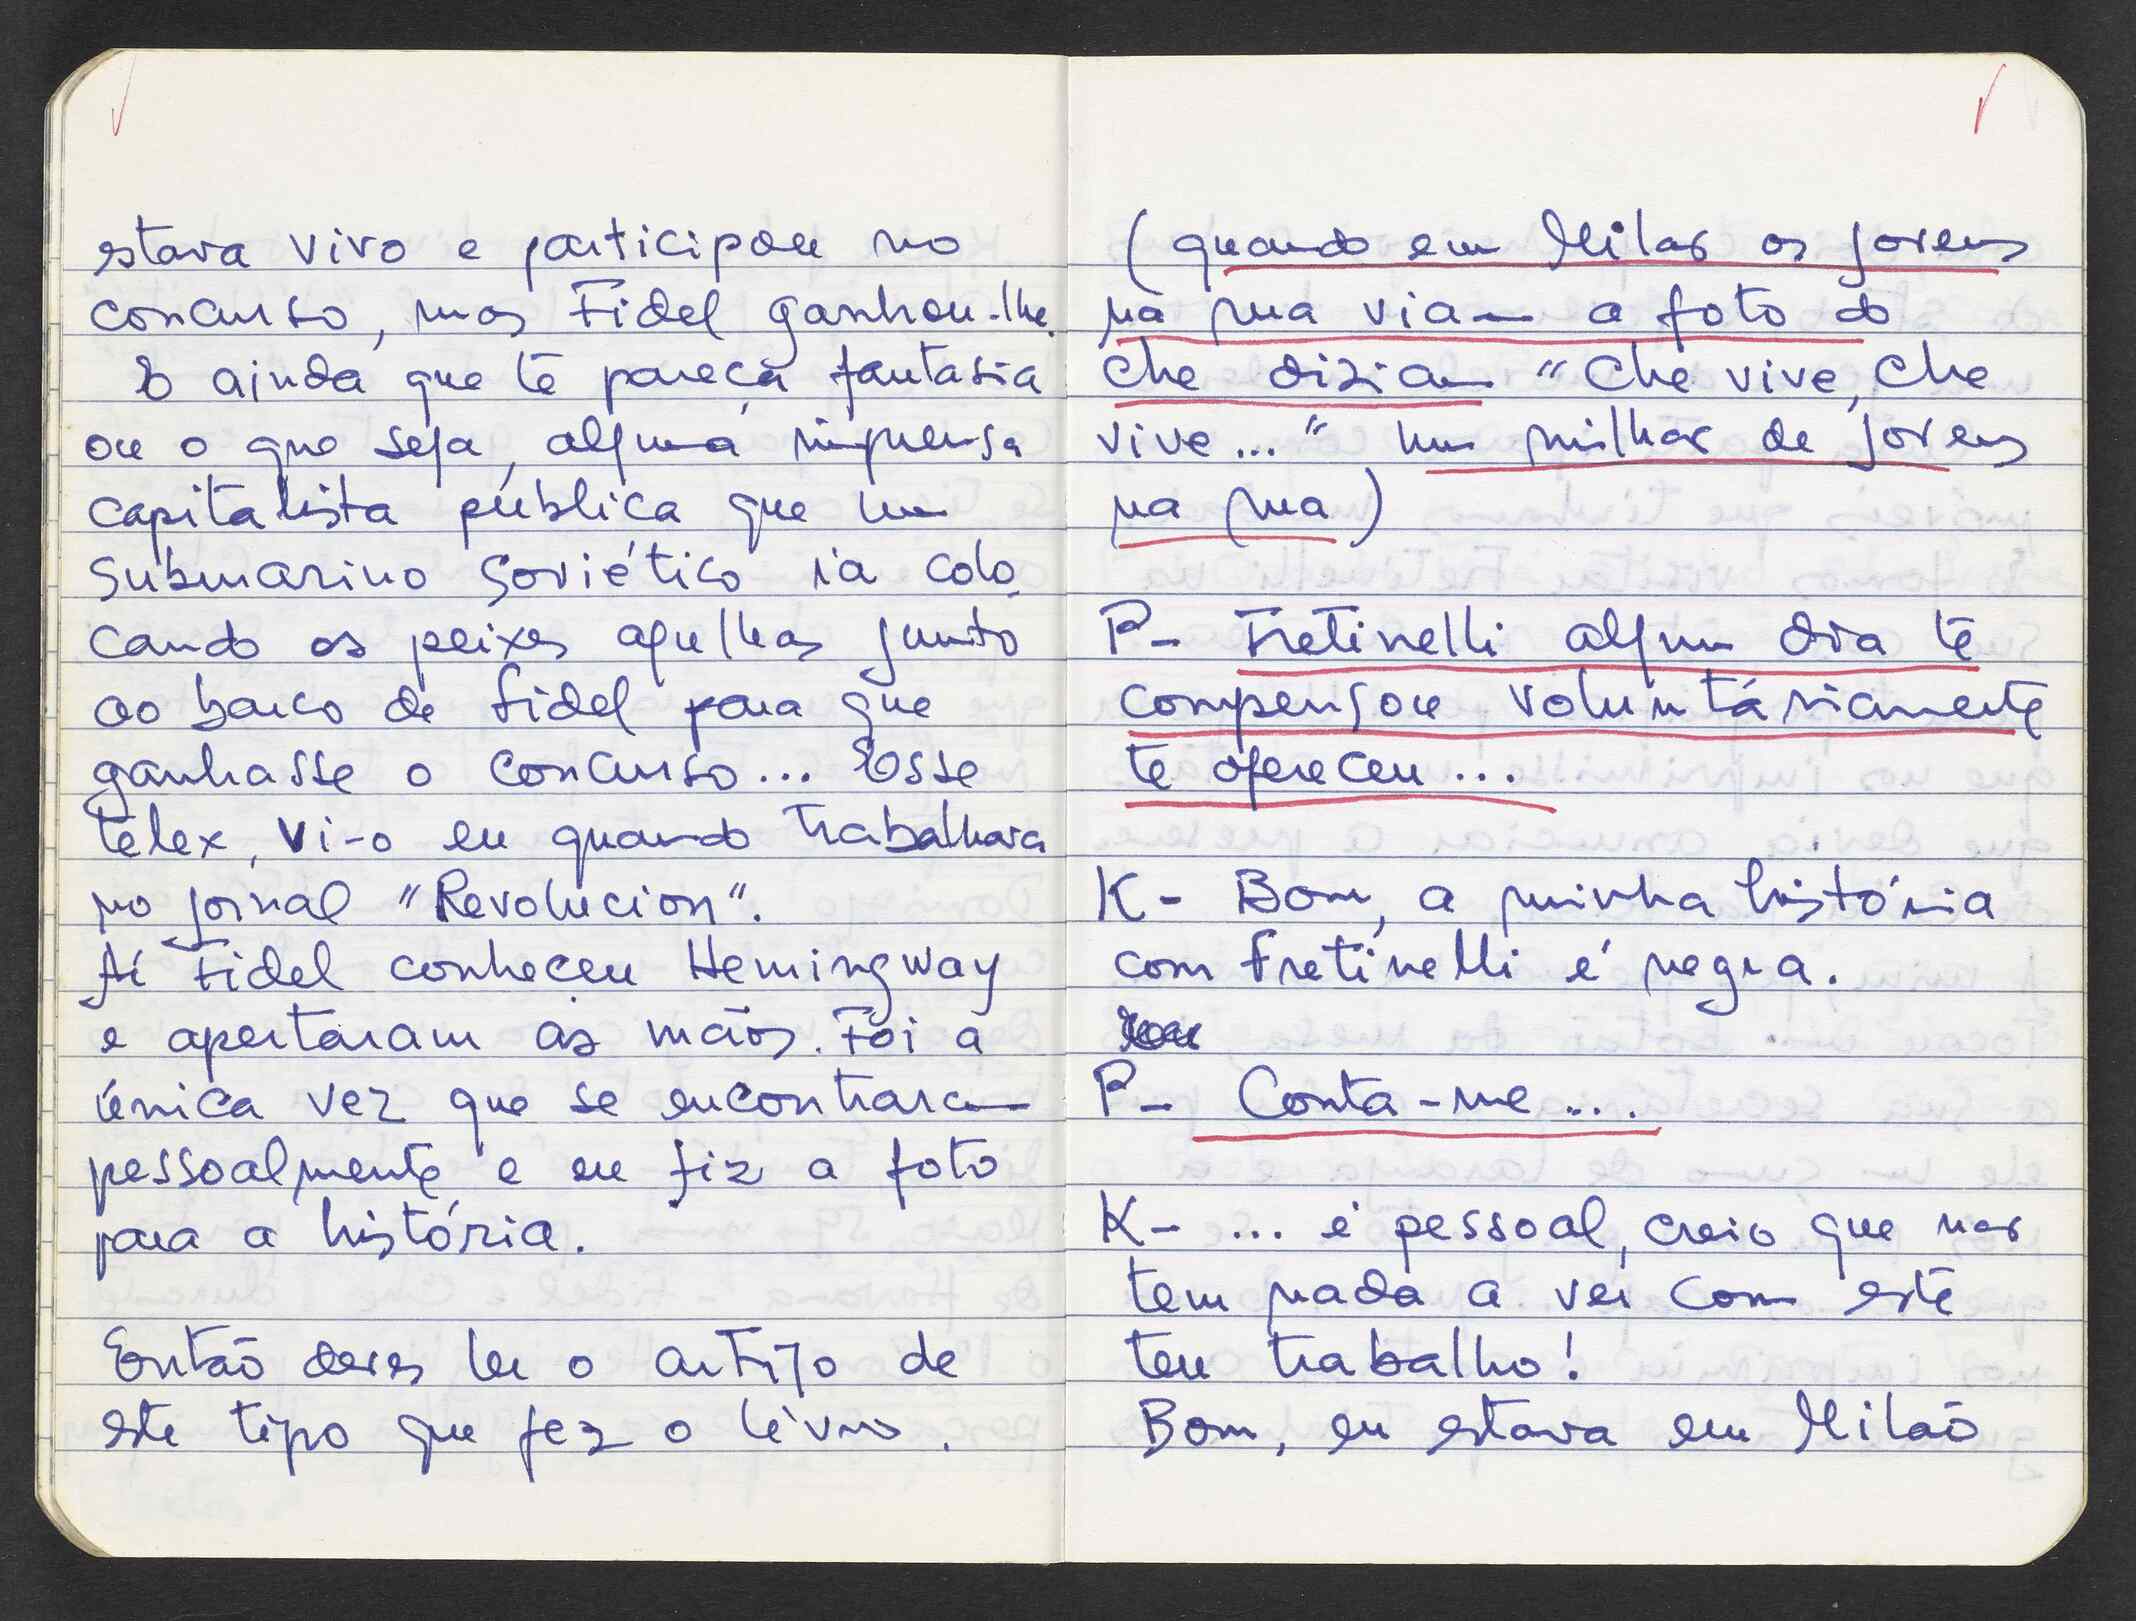 estava vivo e participou no
concurso, mas Fidel ganhou-lhe.
E ainda que te pareça fantasia
ou o que seja, alguma imprensa
capitalista pública que um
submarino soviético ia colo
cando os peixes agulhas junto
ao barco de Fidel para que
ganhasse o concurso... Esse
telex, vi-o eu quando trabalhava
no jornal "Revolucion".
Aí Fidel conheceu Hemingway
e apertaram as mãos. Foi a
única vez que se encontraram
pessoalmente e eu fiz a foto
para a história.
Então deves ler o artigo de
este tipo que fez o livro.
(quando em Milão os jovens
na rua viam a foto do
Che diziam "Che vive, Che
vive..." um milhar de jovens
na rua)
P- Fretinelli algum dia te
compensou voluntáriamente
te ofereceu...
K- Bom, a minha história
com Fretinelli é negra.
P- Conta-me...
K- ... é pessoal, creio que não
tem nada a ver com este
teu trabalho!
Bom, eu estava em Milão